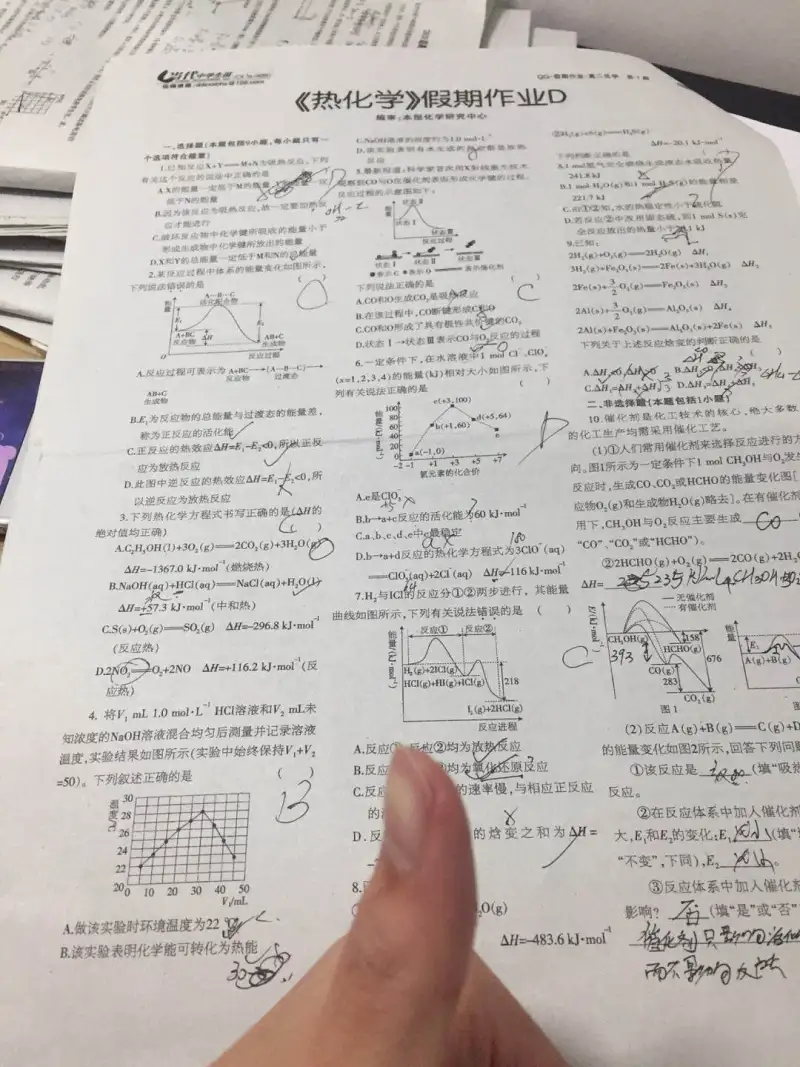 当代中学生报
QQ·假期作业·高二化学 第7期
《热化学》假期作业D
编审:本报化学研究中心
一、选择题(本题包括9小题,每小题只有一
个选项符合题意)
1.已知反应X+Y══M+N为吸热反应,下列
有关这个反应的说法中正确的是
A.X的能量一定低于M的能量
低于N的能量
B.因为该反应为吸热反应,故一定要加热反
应才能进行
C.破坏反应物中化学键所吸收的能量小于
形成生成物中化学键所放出的能量
D.X和Y的总能量一定低于M和N的总能量
2.某反应过程中体系的能量变化如图所示,
下列说法错误的是 ( )
能量
A···B···C
活化配合物
E₁
E₂
A+BC
反应物
ΔH
AB+C
生成物
O
反应过程
A.反应过程可表示为 A+BC→[A···B···C]→
反应物 过渡态
AB+C
生成物
B.E₁为反应物的总能量与过渡态的能量差,
称为正反应的活化能
C.正反应的热效应ΔH=E₁-E₂<0,所以正反
应为放热反应
D.此图中逆反应的热效应ΔH=E₁-E₂<0,所
以逆反应为放热反应
3.下列热化学方程式书写正确的是(ΔH的
绝对值均正确) ( )
A.C₂H₅OH(l)+3O₂(g)══2CO₂(g)+3H₂O(g)
ΔH=-1367.0 kJ·mol⁻¹(燃烧热)
B.NaOH(aq)+HCl(aq)══NaCl(aq)+H₂O(l)
ΔH=+57.3 kJ·mol⁻¹(中和热)
C.S(s)+O₂(g)══SO₂(g) ΔH=-296.8 kJ·mol⁻¹
(反应热)
D.2NO₂══O₂+2NO ΔH=+116.2 kJ·mol⁻¹(反
应热)
4. 将V₁ mL 1.0 mol·L⁻¹ HCl溶液和V₂ mL未
知浓度的NaOH溶液混合均匀后测量并记录溶液
温度,实验结果如图所示(实验中始终保持V₁+V₂
=50)。下列叙述正确的是 ( )
B
温度/℃
30
28
26
24
22
20
0 10 20 30 40 50
V₁/mL
A.做该实验时环境温度为22
B.该实验表明化学能可转化为热能
30
C.NaOH溶液的浓度约为1.0 mol·L⁻¹
D.该实验表明有水生成的反应都是放热
反应
5.最新报道:科学家首次用X射线激光技术
观察到CO与O在催化剂表面形成化学键的过程。
反应过程的示意图如下:
能量
状态Ⅰ
状态Ⅱ
状态Ⅲ
反应过程
状态Ⅰ 状态Ⅱ 状态Ⅲ
●表示C ●表示O 表示催化剂
下列说法正确的是 ( )
C
A.CO和O生成CO₂是吸热反应
B.在该过程中,CO断键形成C和O
C.CO和O形成了具有极性共价键的CO₂
D.状态Ⅰ→状态Ⅲ表示CO与O₂反应的过程
6.一定条件下,在水溶液中1 mol Cl⁻、ClOₓ⁻
(x=1,2,3,4)的能量(kJ)相对大小如图所示,下
列有关说法正确的是 ( )
D
能量/(kJ·mol⁻¹)
100
80
60
40
20
0
c(+3,100)
b(+1,60)
d(+5,64)
e
a(-1,0)
-2 -1 +1 +3 +5 +7
氯元素的化合价
A.e是ClO₃⁻
B.b→a+c反应的活化能为60 kJ·mol⁻¹
C.a、b、c、d、e中c最稳定
D.b→a+d反应的热化学方程式为3ClO⁻(aq)
══ClO₃⁻(aq)+2Cl⁻(aq) ΔH=-116 kJ·mol⁻¹
7.H₂与ICl的反应分①②两步进行,其能量
曲线如图所示,下列有关说法错误的是 ( )
C
能量/(kJ·mol⁻¹)
反应① 反应②
H₂(g)+2ICl(g)
HCl(g)+HI(g)+ICl(g)
218
I₂(g)+2HCl(g)
反应进程
A.反应①、反应②均为放热反应
B.反应 均为氧化还原反应
C.反应 的速率慢,与相应正反应
D.反 的焓变之和为ΔH=
8.
O(g)
ΔH=-483.6 kJ·mol⁻¹
②H₂(g)+S(g)══H₂S(g)
ΔH=-20.1 kJ·mol⁻¹
下列判断正确的是
241.8 kJ
B.1 mol H₂O(g)和1 mol H₂S(g)的能量相差
221.7 kJ
C.由①②知,水的热稳定性小于硫化氢
D.若反应②中改用固态硫,则1 mol S(s)完
全反应放出的热量小于20.1 kJ
9.已知:
2H₂(g)+O₂(g)══2H₂O(g) ΔH₁
3H₂(g)+Fe₂O₃(s)══2Fe(s)+3H₂O(g) ΔH₂
2Fe(s)+3/2 O₂(g)══Fe₂O₃(s) ΔH₃
2Al(s)+3/2 O₂(g)══Al₂O₃(s) ΔH₄
2Al(s)+Fe₂O₃(s)══Al₂O₃(s)+2Fe(s) ΔH₅
下列关于上述反应焓变的判断正确的是 ( )
二、非选择题(本题包括1小题)
10.催化剂是化工技术的核心,绝大多数
的化工生产均需采用催化工艺。
(1)①人们常用催化剂来选择反应进行的方
向。图1所示为一定条件下1 mol CH₃OH与O₂发生
反应时,生成CO、CO₂或HCHO的能量变化图[
应物O₂(g)和生成物H₂O(g)略去]。在有催化剂
用下,CH₃OH与O₂反应主要生成 CO
“CO”、“CO₂”或“HCHO”)。
②2HCHO(g)+O₂(g)══2CO(g)+2H₂O
ΔH=
无催化剂
有催化剂
E/(kJ·mol⁻¹)
CH₃OH(g)
158
HCHO(g)
393
676
CO(g)
283
CO₂(g)
图1
能量
E₁
A(g)+B(g)
(2)反应A(g)+B(g)══C(g)+D
的能量变化如图2所示,回答下列问题
①该反应是 吸热 (填“吸热
反应。
②在反应体系中加入催化剂
大,E₁和E₂的变化:E₁ 减小 (填“
“不变”,下同),E₂ 减小。
③反应体系中加入催化剂
影响? 否 (填“是”或“否”
催化剂只影响活化